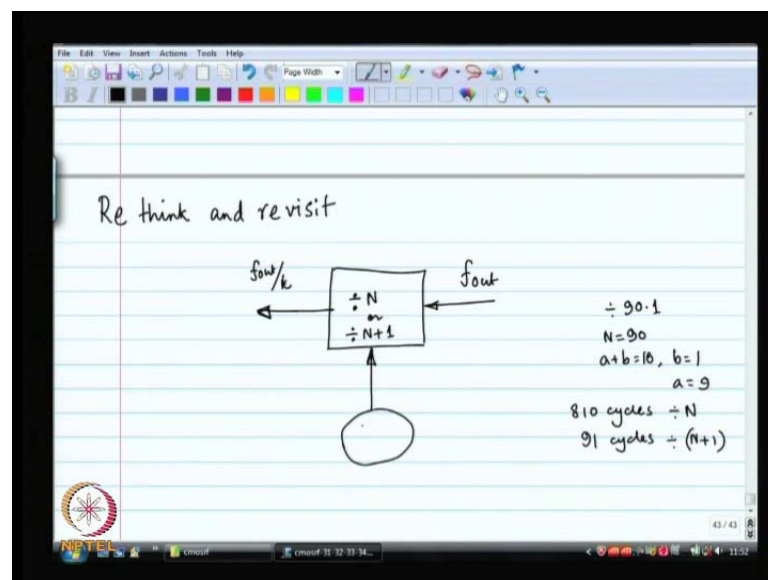 File Edit View Insert Actions Tools Help
Page Width
B I
Re think and revisit
fout/k
÷ N
or
÷ N+1
fout
÷ 90.1
N=90
a+b=10, b=1
a=9
810 cycles ÷N
91 cycles ÷ (N+1)
43/43
NPTEL
cmosrf
cmosrf-31-32-33-34...
11:52